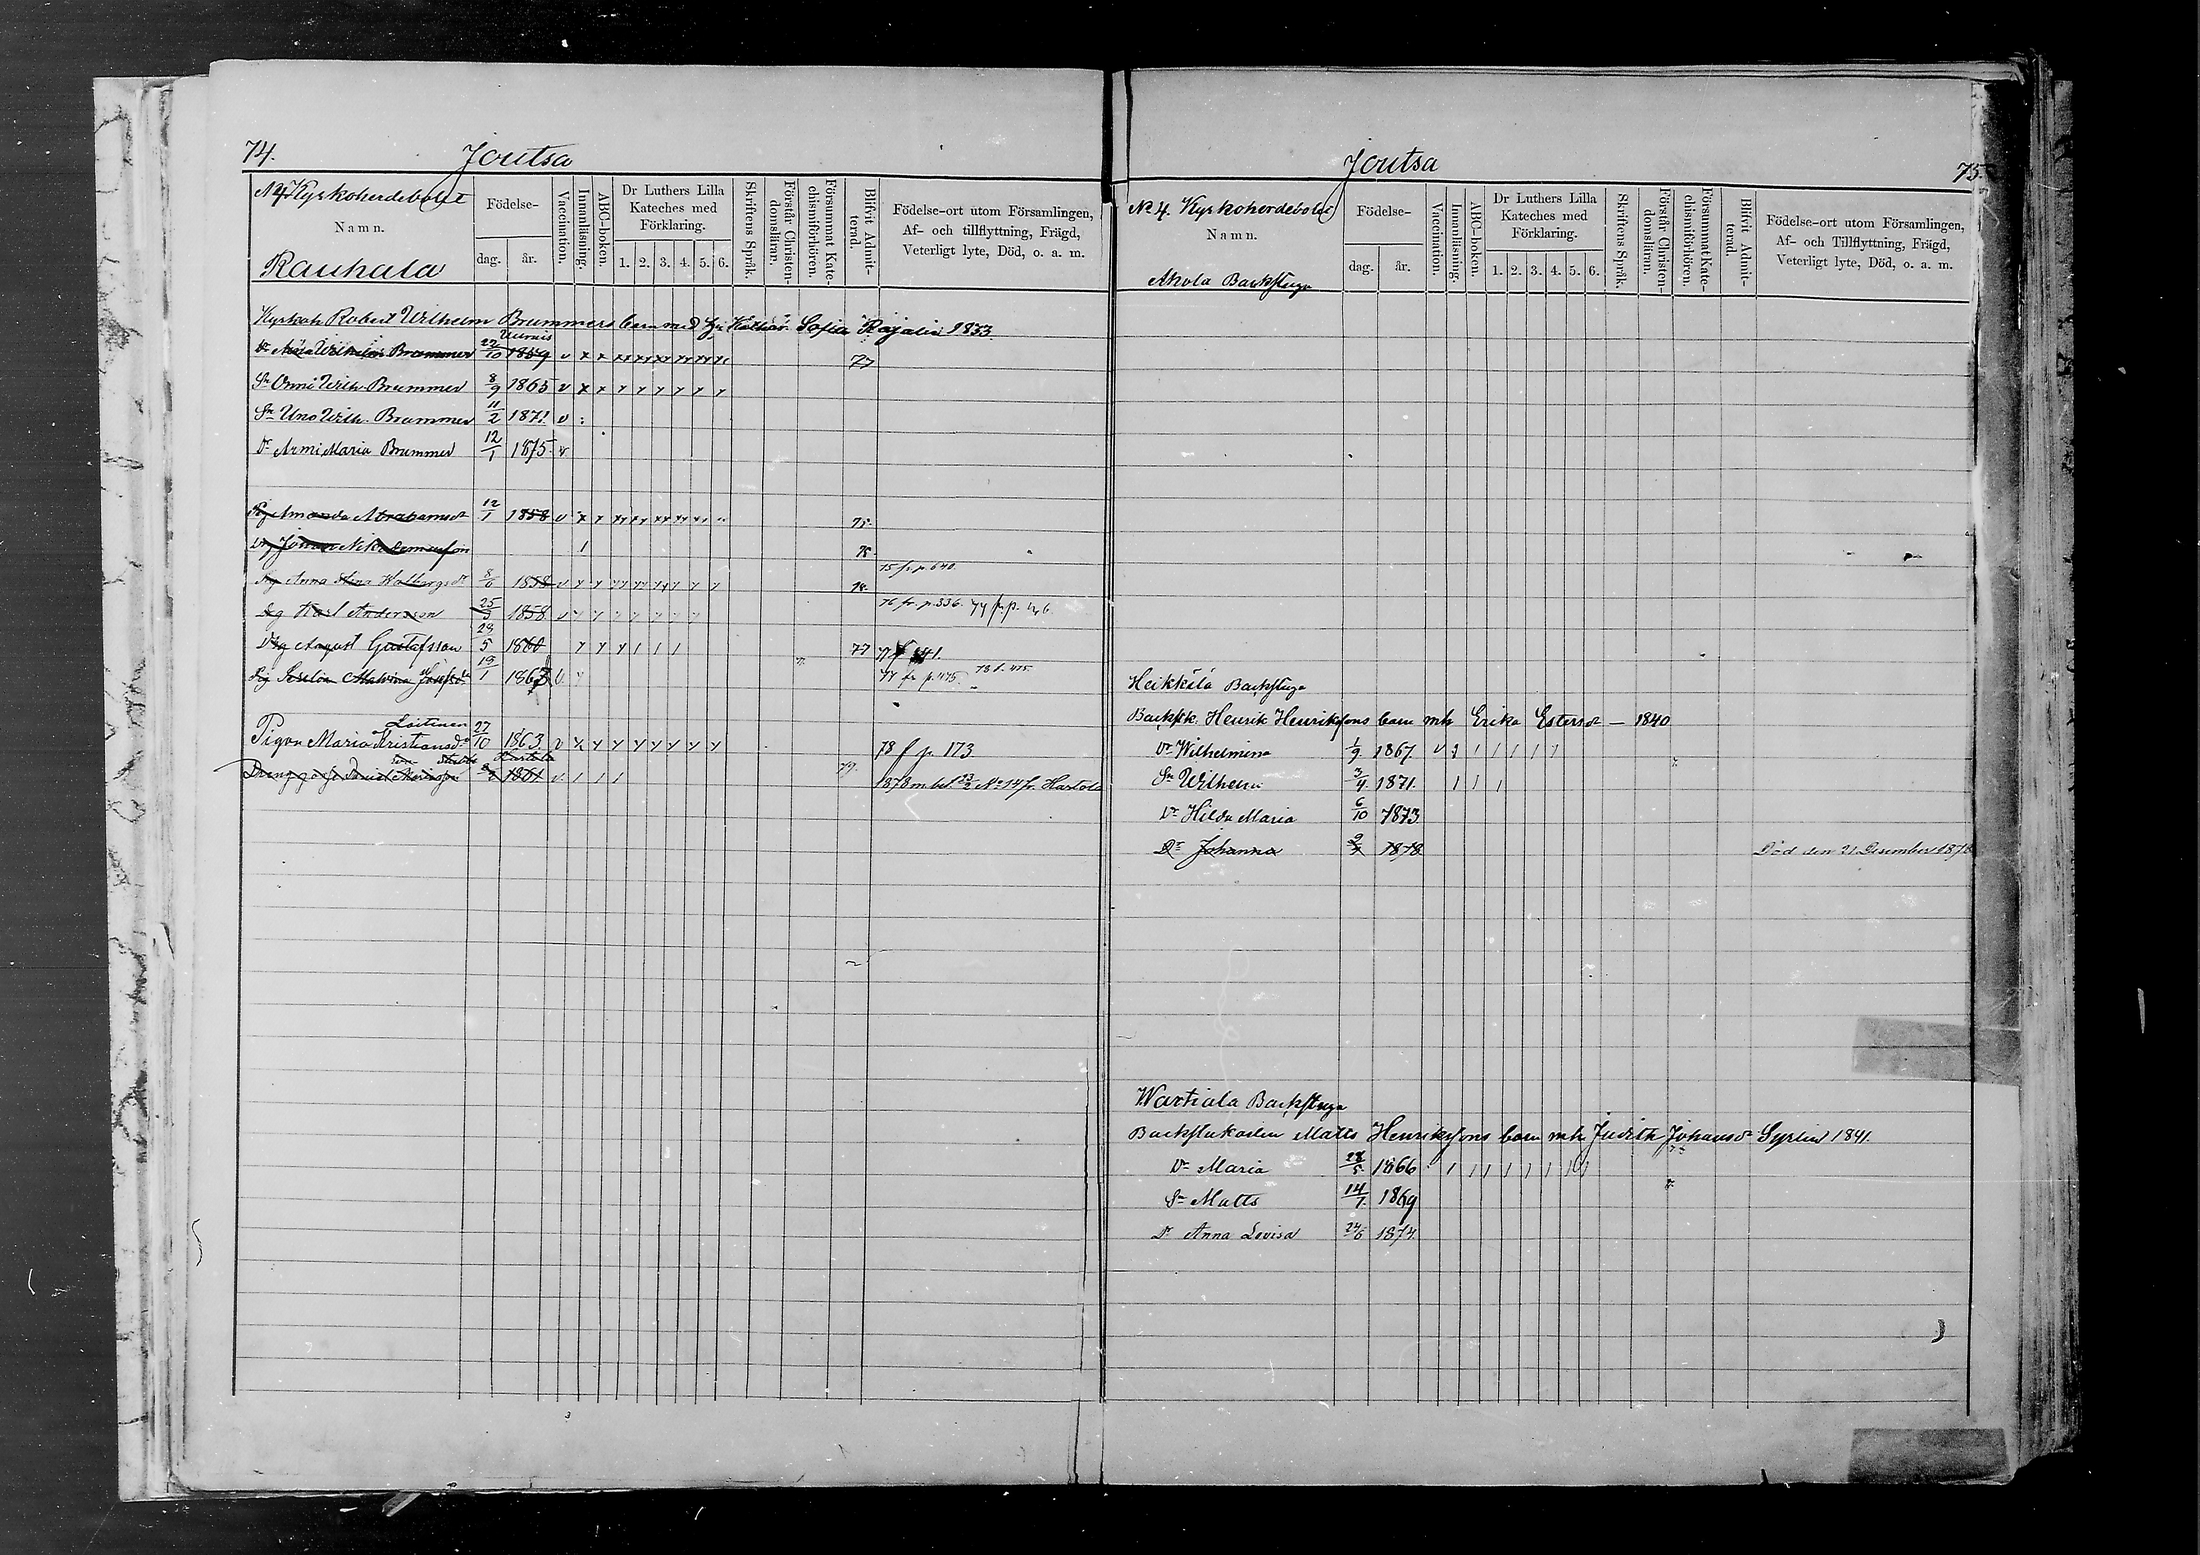 74.
Joutsa
No 4 Kyrkoherdebolet
Namn.
Rauhala
Födelse-
dag.
år.
Vaccination.
Innanläsning.
ABC-boken.
Dr Luthers Lilla
Kateches med
Förklaring.
1. 2. 3. 4. 5. 6.
Skriftens Språk.
Förstår Christen-
domsläran.
Försummat Kate-
chismiförhören.
Blifvit Admit-
terad.
Födelse-ort utom Församlingen,
Af- och tillflyttning, Frägd,
Veterligt lyte, Död, o. a. m.
Kyrkoh Robert Wilhelm Brummers barn med Sofia Rajalin 1833
Dr Wilhelm. Brummer 22/10 1859 v x x 77
Sn Onni Wilh. Brummer 8/9 1865 v x x
Sn Uno Wilh. Brummer 11/2 1871. v
Dr Armi Maria Brummer 12/1 1875 v
Pig Amanda Abrahamsdr 12/1 1858 v 75.
Drg Johan Nikodemusson
15 fr. p. 640.
Pig Anna Stina Walbergsdr 8/6 1858 v
76 fr. p. 336.
Drg Karl Andersson 25/3 1858 v
Drg August Gustafsson 23/5 1860 77
77 fr p. 475. 78 f. 475
Josefsdr 19/1 1863 v
Loitinen
Pigan Maria Kristiansdr 27/10 1863 v 78 f p. 173
Hartola
1861 v 79. 1878 m bet. 23/2 No 14 fr. Hartola
Joutsa
75.
No 4. Kyrkoherdebolet
Namn.
Ahola Backstuga
Födelse-
dag.
år.
Vaccination.
Innanläsning.
ABC-boken.
Dr Luthers Lilla
Kateches med
Förklaring.
1. 2. 3. 4. 5. 6.
Skriftens Språk.
Förstår Christen-
domsläran.
Försummat Kate-
chismiförhören.
Blifvit Admit-
terad.
Födelse-ort utom Församlingen,
Af- och Tillflyttning, Frägd,
Veterligt lyte, Död, o. a. m.
Heikkilä Backstuga
Backstk. Henrik Henrikssons barn mh Erika Estersdr — 1840
Dr Wilhelmina 1/9 1867. v
Sn Wilhelm 3/4 1871.
Dr Hilda Maria 6/10 1873
Dr Johanna 1878 Död den 21 Desember 1878
Wartiala Backstuga
Backstukarlen Matts Henrikssons barn mh Judith Johansdr Syrlin 1841.
Dr Maria 28/5 1866
Sn Matts 14/7 1869
Dr Anna Lovisa 24/6 1874.